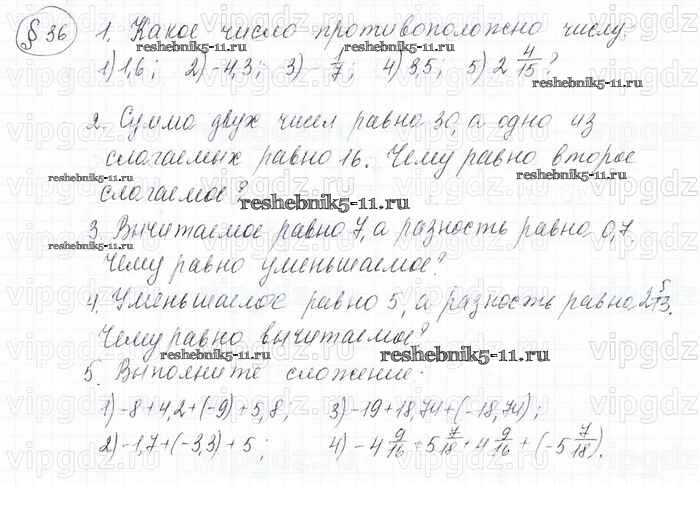 § 36 1. Какое число противоположно числу:
1) 1,6; 2) -4,3; 3) -1/7; 4) 3,5; 5) 2 4/15?
2. Сумма двух чисел равна 30, а одно из
слагаемых равно 16. Чему равно второе
слагаемое?
3. Вычитаемое равно 7, а разность равна 0,7.
Чему равно уменьшаемое?
4. Уменьшаемое равно 5, а разность равна 2 5/13.
Чему равно вычитаемое?
5. Выполните сложение:
1) -8 + 4,2 + (-9) + 5,8; 3) -19 + 18,74 + (-18,74);
2) -1,7 + (-3,3) + 5; 4) -4 9/16 + 5 7/18 + 4 9/16 + (-5 7/18).
reshebnik5-11.ru
reshebnik5-11.ru
reshebnik5-11.ru
reshebnik5-11.ru
reshebnik5-11.ru
reshebnik5-11.ru
reshebnik5-11.ru
reshebnik5-11.ru